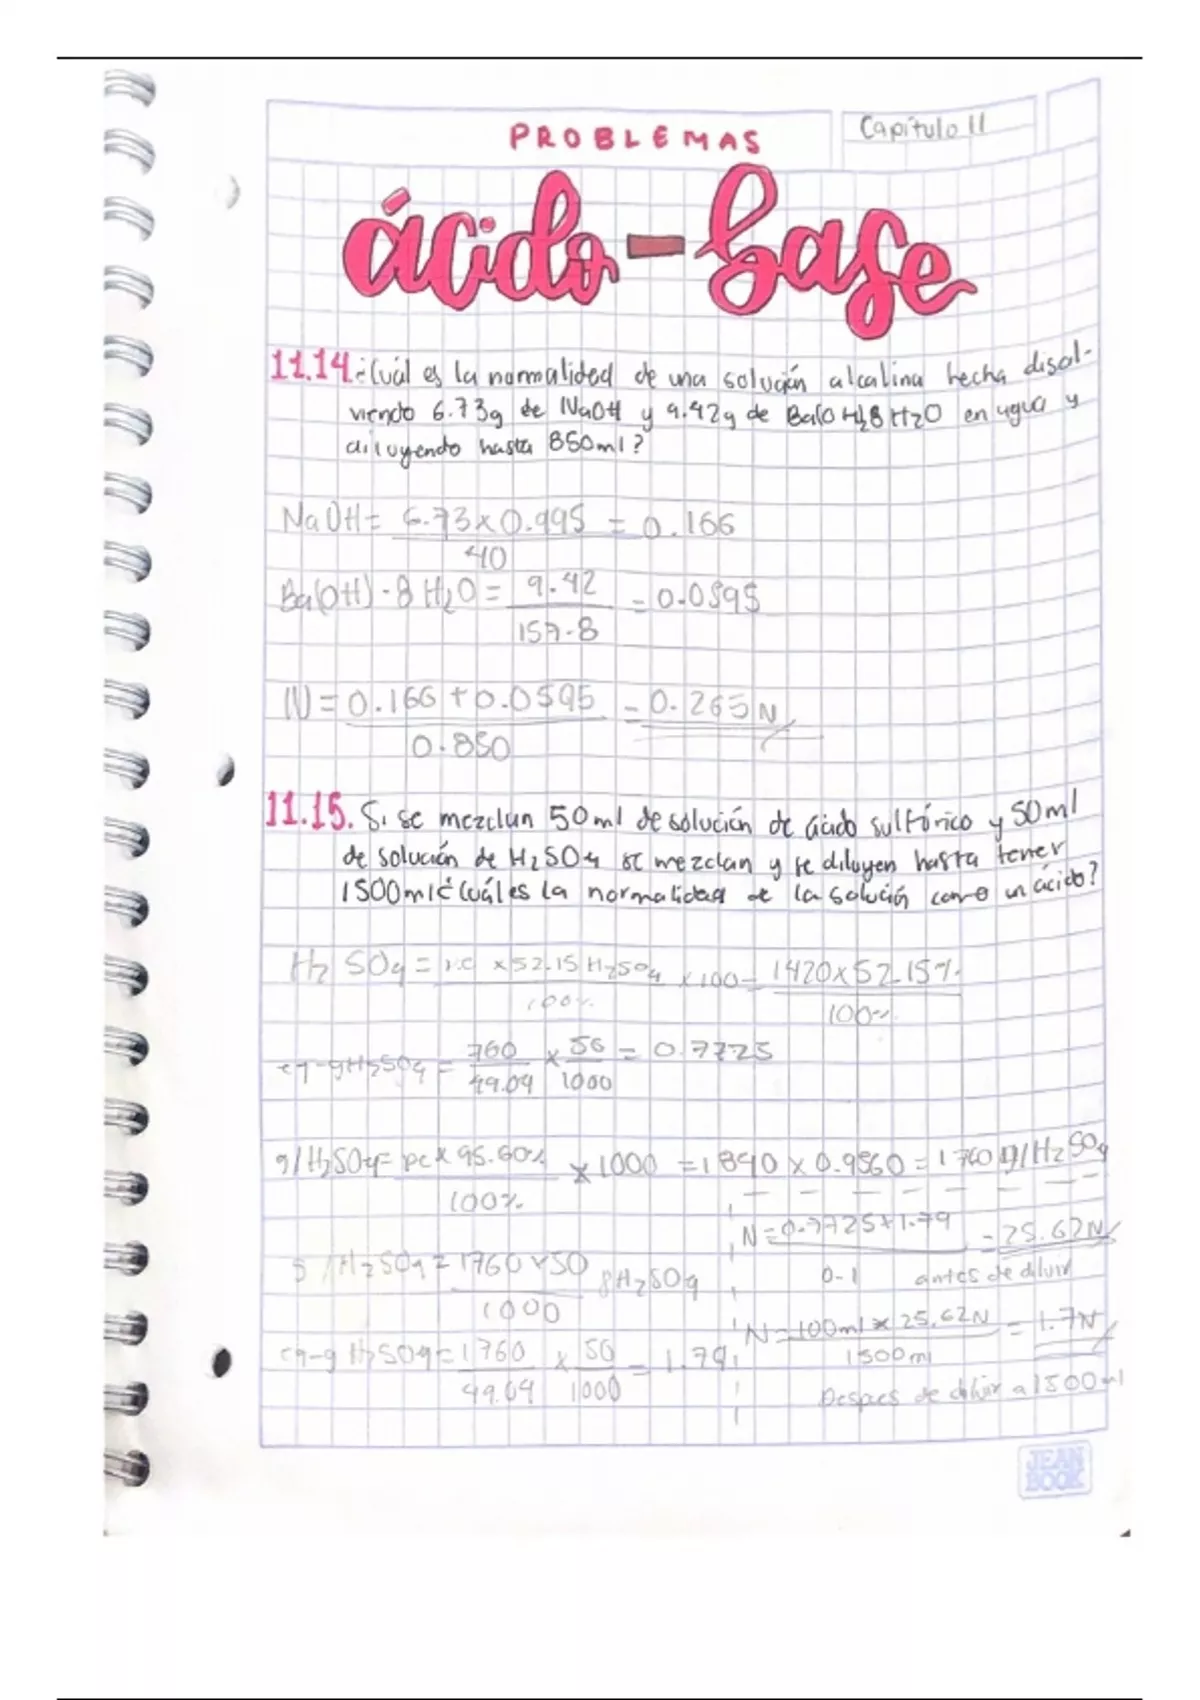 PROBLEMAS
Capítulo 11
ácido-base
11.14. ¿Cuál es la normalidad de una solución alcalina hecha disol-
viendo 6.73g de NaOH y 9.42g de Ba(OH)28H2O en agua y
diluyendo hasta 850ml?
NaOH = 6.73 x 0.995 = 0.166
40
Ba(OH)·8H2O = 9.42 = 0.0595
157.8
N = 0.166 + 0.0595 = 0.265N
0.850
11.15. Si se mezclan 50ml de solución de ácido sulfúrico y 50ml
de solución de H2SO4 se mezclan y se diluyen hasta tener
1500ml ¿Cuál es la normalidad de la solución como un ácido?
H2SO4 = x 52.15 H2SO4 x 100 = 1420 x 52.15%
100% 100%
eq-gH2SO4 = 760 x 50 = 0.7725
49.04 1000
g/H2SO4 = pe x 95.60% x 1000 = 1840 x 0.9560 = 1760 g/H2SO4
100%
N = 0.7725 + 1.79 = 25.62N
0.1 antes de diluir
/H2SO4 = 1760 x 50 gH2SO4
1000
N = 100ml x 25.62N = 1.7N
1500ml
eq-g H2SO4 = 1760 x 50 = 1.79
49.04 1000
Despues de diluir a 1500ml
JEAN
BOOK